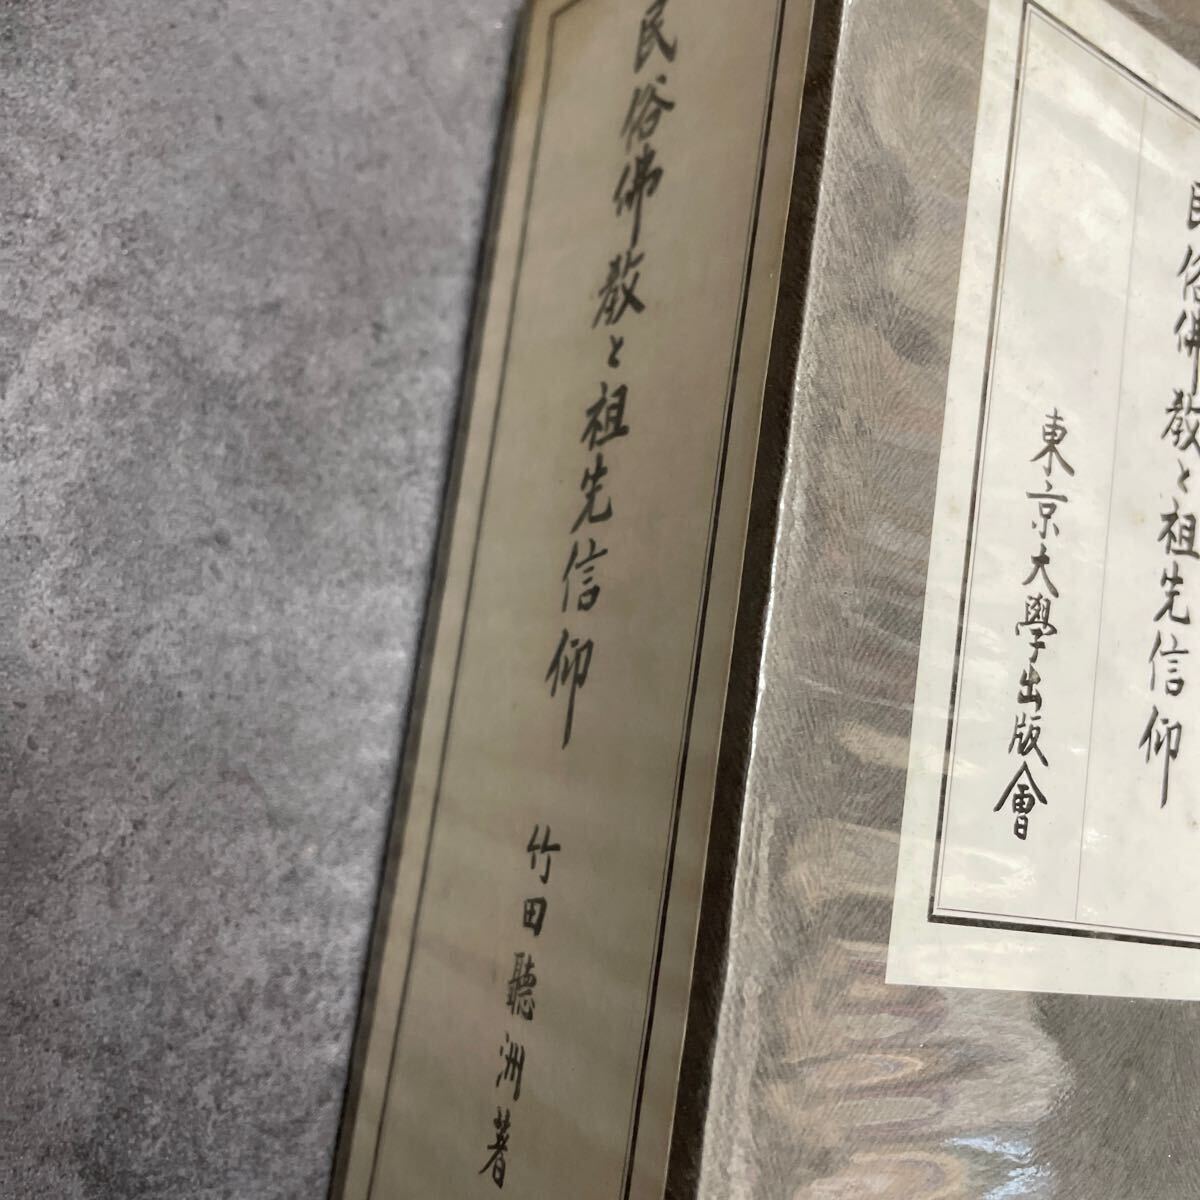 民俗佛教と祖先信仰
竹田聽洲著
民俗佛教と祖先信仰
東京大學出版會